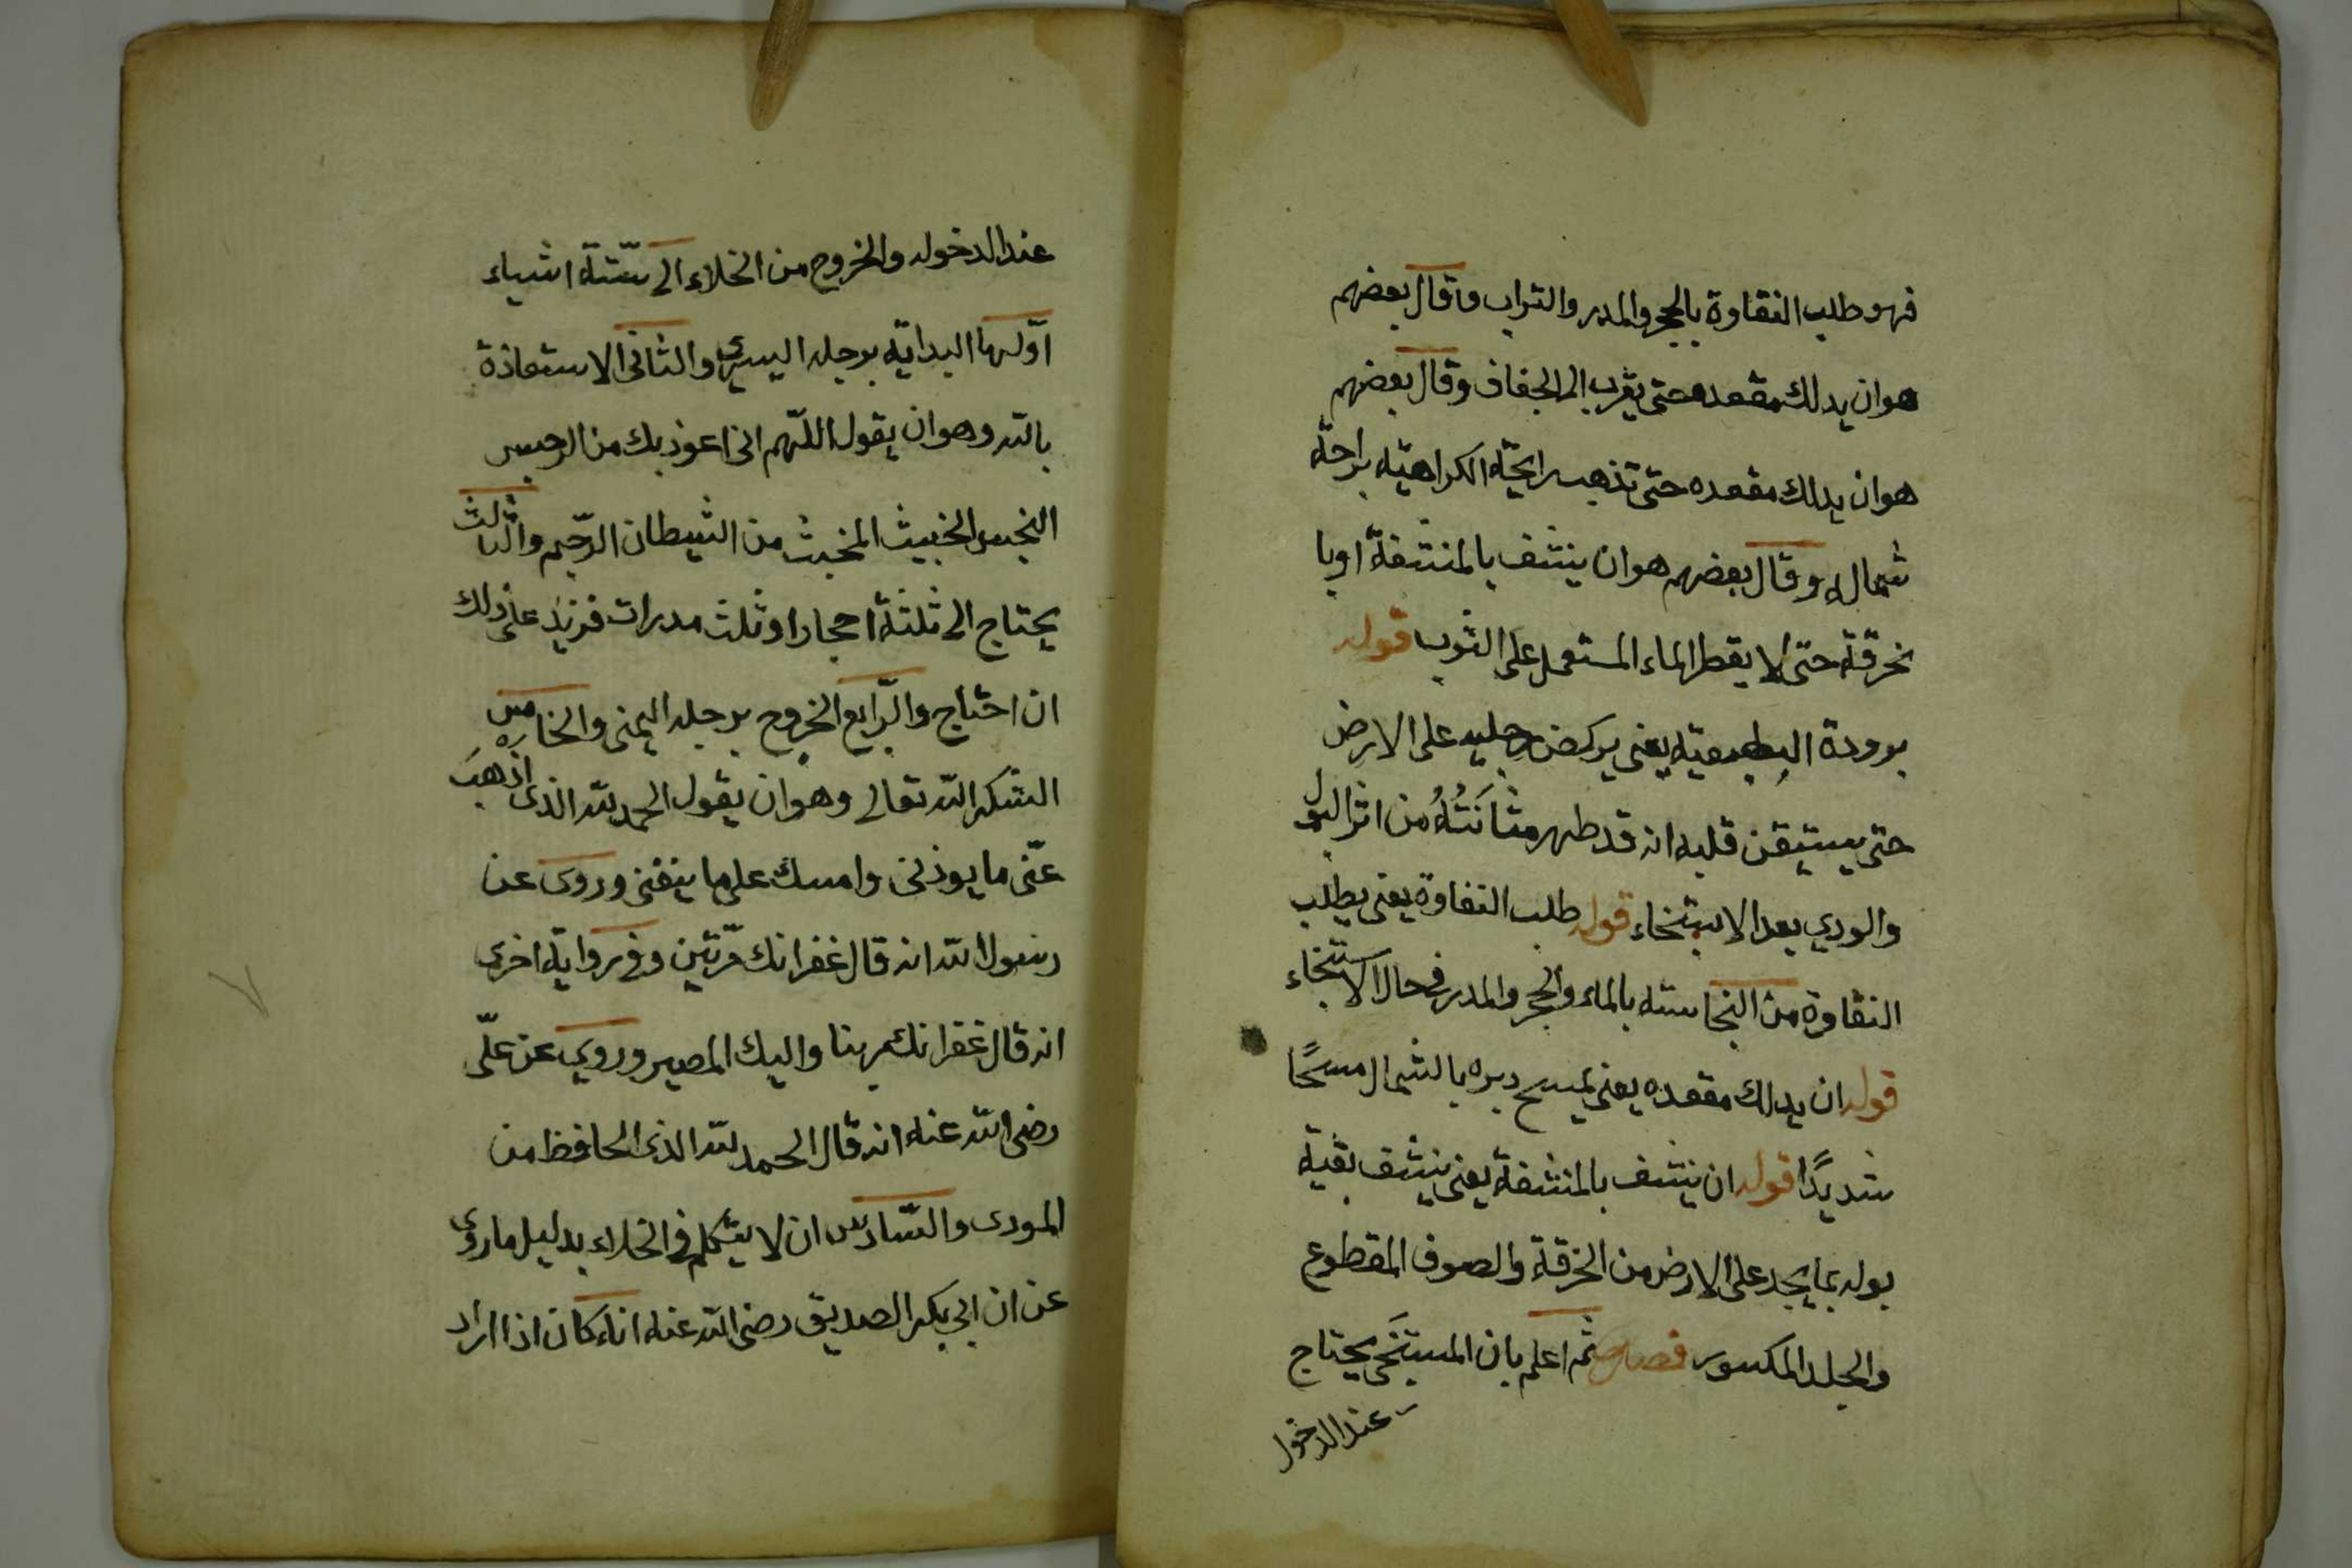 فهو طلب النقاوة بالحجر والمدر والتراب وقال بعضهم
هو ان يدلك مقعده حتى يقرب الى الجفاف وقال بعضهم
هو ان يدلك مقعده حتى تذهب رايحة الكراهية براحة
شماله وقال بعضهم هو ان ينشف بالمنشفة او با
لخرقة حتى لا يقطر الماء المستعمل على الثوب قوله
برودة يعنى يركض رجليه على الارض
حتى يستيقن قلبه انه قد طهر مثانَتُهُ من اثر البول
والودي بعد الاستنجاء قوله طلب النقاوة يعنى يطلب
النقاوة من النجاسة بالماء والحجر والمدر فى حال الاستنجاء
قوله ان يدلك مقعده يعنى يمسح دبره بالشمال مسحًا
شديدًا قوله ان ينشف بالمنشفة يعنى ينشف بقية
بوله بما يجد على الارض من الخرقة والصوف المقطوع
والجلد المكسور فصل ثم اعلم بان المستنجى يحتاج
عند الدخول
عند الدخول والخروج من الخلاء الى ستّة اشياء
اوّلها البداية برجله اليسرى والثانى الاستعاذة
بالله وهو ان يقول اللّهم انى اعوذ بك من الرجس
النجس الخبيث المخبث من الشيطان الرّجيم والثّالث
يحتاج الى ثلثة احجار او ثلث مدرات فزيد على ذلك
ان احتاج والرّابع الخروج برجله اليمنى والخامس
الشكر الله تعالى وهو ان يقول الحمد لله الذى اذهبَ
عنّى ما يوذنى وامسك على ما ينفعنى وروى عن
رسول الله انه قال غفرانك مرّتين وفى رواية اخرى
انه قال غفرانك ربنا واليك المصير وروي عن علّى
رضى الله عنه انه قال الحمد لله الذى الحافظ من
المودى والسّادس ان لا يتكلم فى الخلاء بدليل ما روى
عن ان ابى بكر الصديق رضى الله عنه انه كان اذا اراد